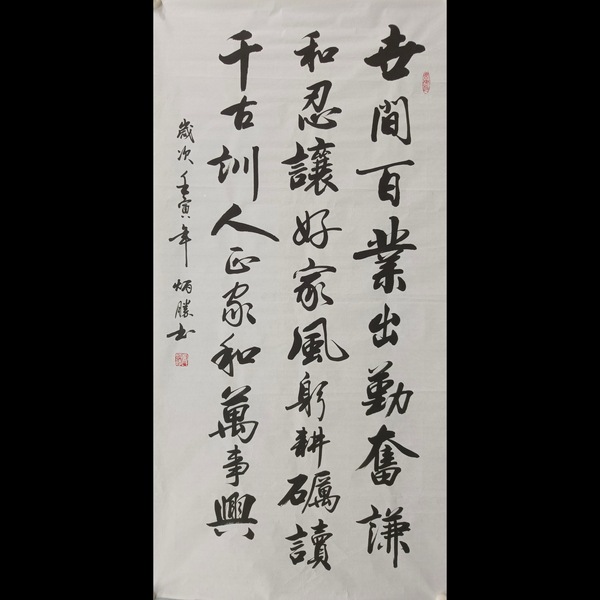 世間百業出勤奮謙
和忍讓好家風躬耕礪讀
千古訓人正家和萬事興
歲次壬寅年炳勝書